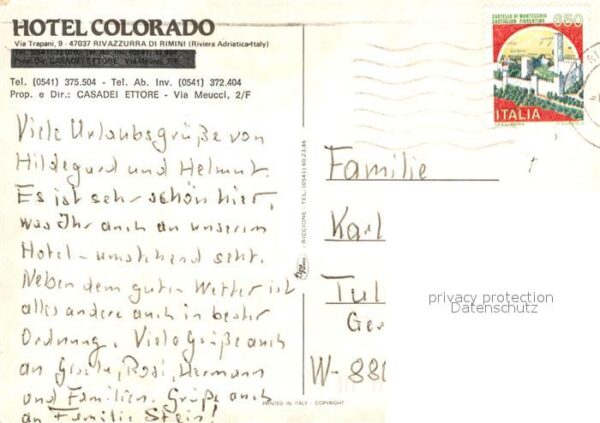 HOTEL COLORADO
Via Trapani, 9 - 47037 RIVAZZURRA DI RIMINI (Riviera Adriatica-Italy)
Prop. Dir. CASADEI ETTORE - Via Meucci, 2/F
Tel. (0541) 375.504 - Tel. Ab. Inv. (0541) 372.404
Prop. e Dir.: CASADEI ETTORE - Via Meucci, 2/F
Viele Urlaubsgrüße von
Hildegard und Helmut.
Es ist sehr schön hier,
was Ihr auch an unserem
Hotel - umstehend seht.
Neben dem guten Wetter ist
alles andere auch in bester
Ordnung. Viele Grüße auch
an Gisela, Rosi, Hermann
und Familien. Grüße auch
an Familie Stein!
CASTELLO DI MONTECCHIO
CASTIGLION FIORENTINO
650
ITALIA
Familie
Karl
Tul
Ger
W-880
privacy protection
Datenschutz
RICCIONE - TEL. (0541)
PRINTED IN ITALY - COPYRIGHT